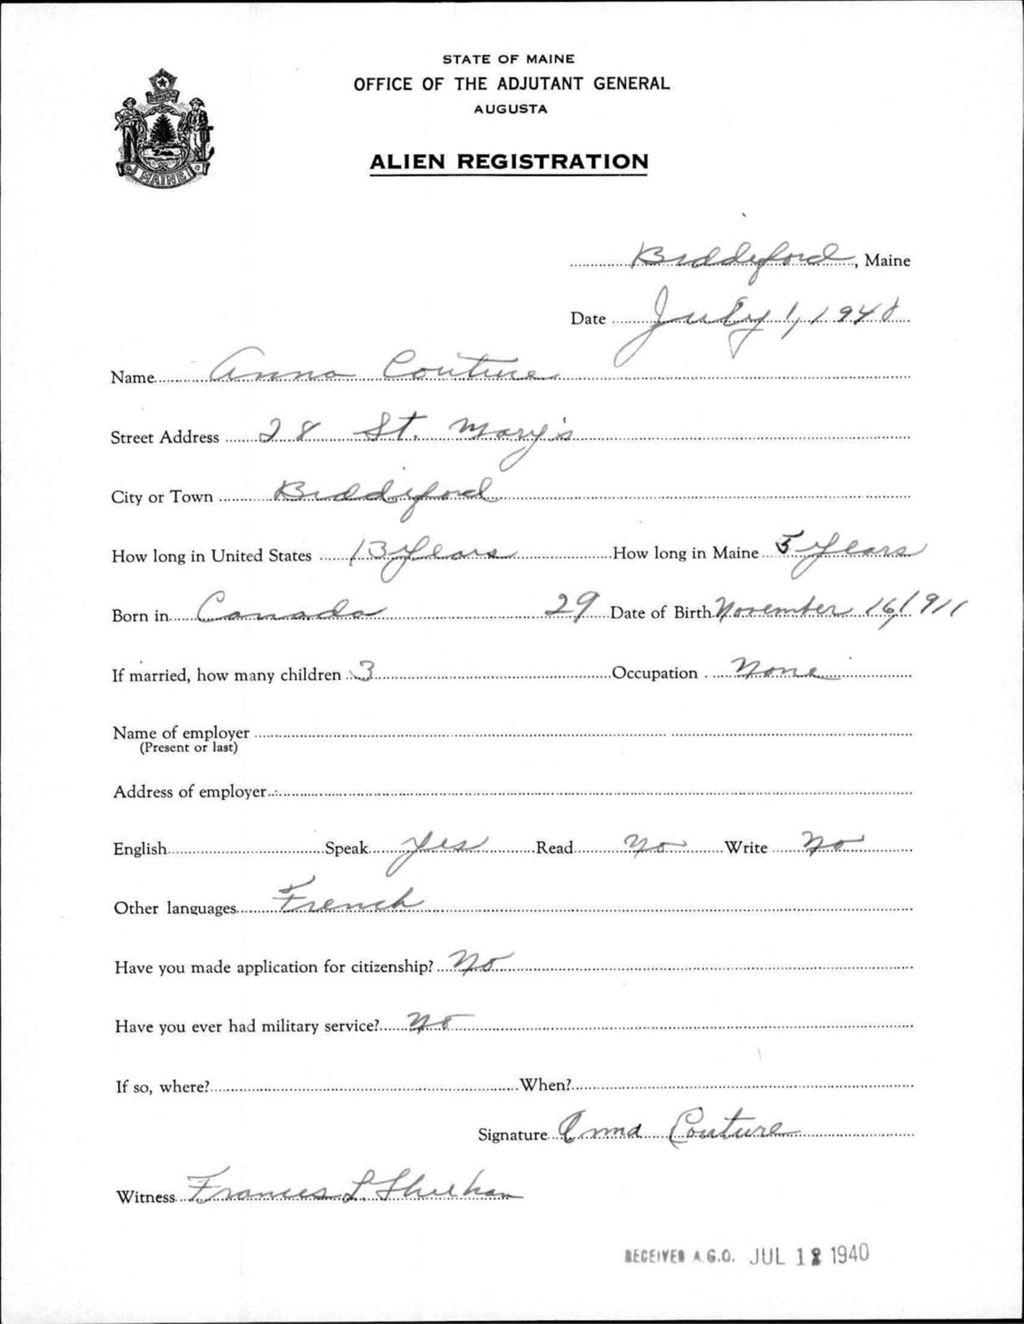 STATE OF MAINE
OFFICE OF THE ADJUTANT GENERAL
AUGUSTA
MAINE
ALIEN REGISTRATION
Biddeford, Maine
Date July 1, 1940
Name Anna Couture
Street Address 28 St. Mary's
City or Town Biddeford
How long in United States 13 years How long in Maine 5 years
Born in Canada 29 Date of Birth November 16, 1911
If married, how many children 3 Occupation None
Name of employer
(Present or last)
Address of employer
English Speak Yes Read No Write No
Other languages French
Have you made application for citizenship? No
Have you ever had military service? No
If so, where? When?
Signature Anna Couture
Witness Frances L Sheehan
RECEIVED A.G.O. JUL 12 1940